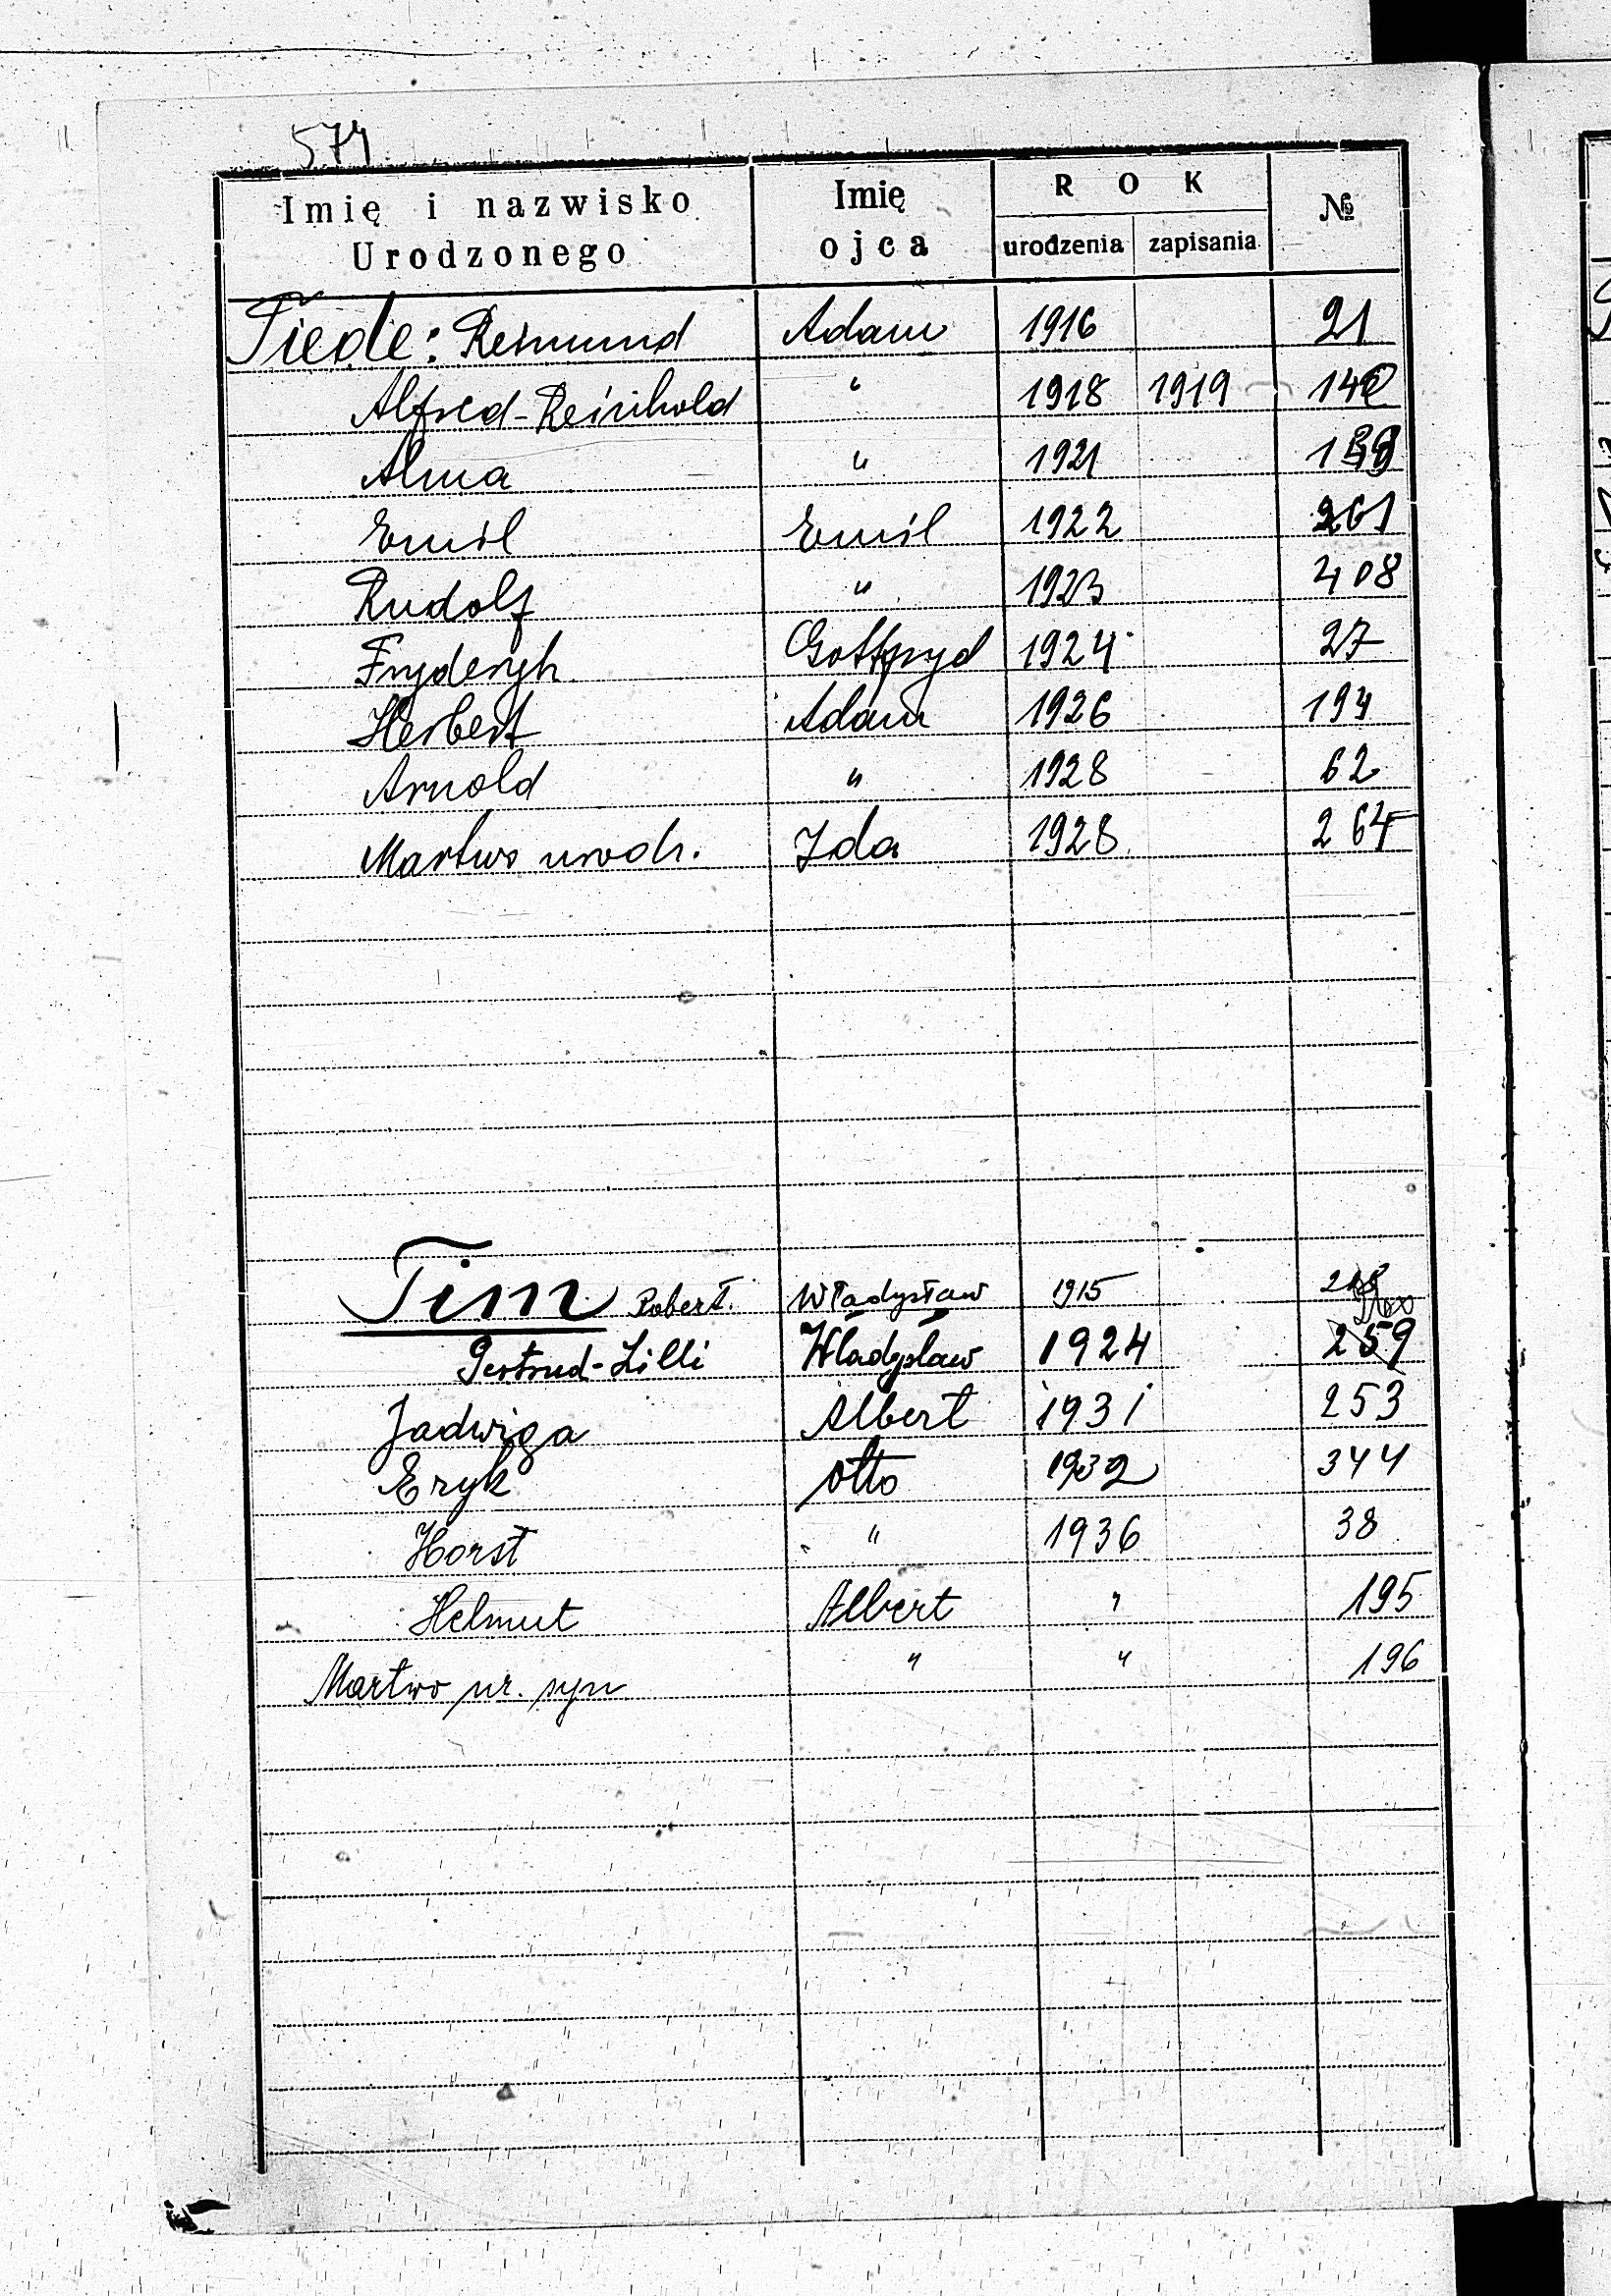 574
Imię i nazwisko Urodzonego Imię ojca ROK urodzenia zapisania №
Tiede: Reimund Adam 1916 21
Alfred-Reinhold " 1918 1919
Alma " 1921
Emil Emil 1922 261
Rudolf " 1923 408
Fryderyk Gottfryd 1924 27
Herbert Adam 1926 194
Arnold " 1928 62
Martwo urodz. Ida 1928 264
Tim Robert. Władysław 1915
Gertrud-Lilli Władysław 1924 259
Jadwiga Albert 1931 253
Eryk Otto 1932 344
Horst " 1936 38
Helmut Albert " 195
Martwo ur. syn " " 196